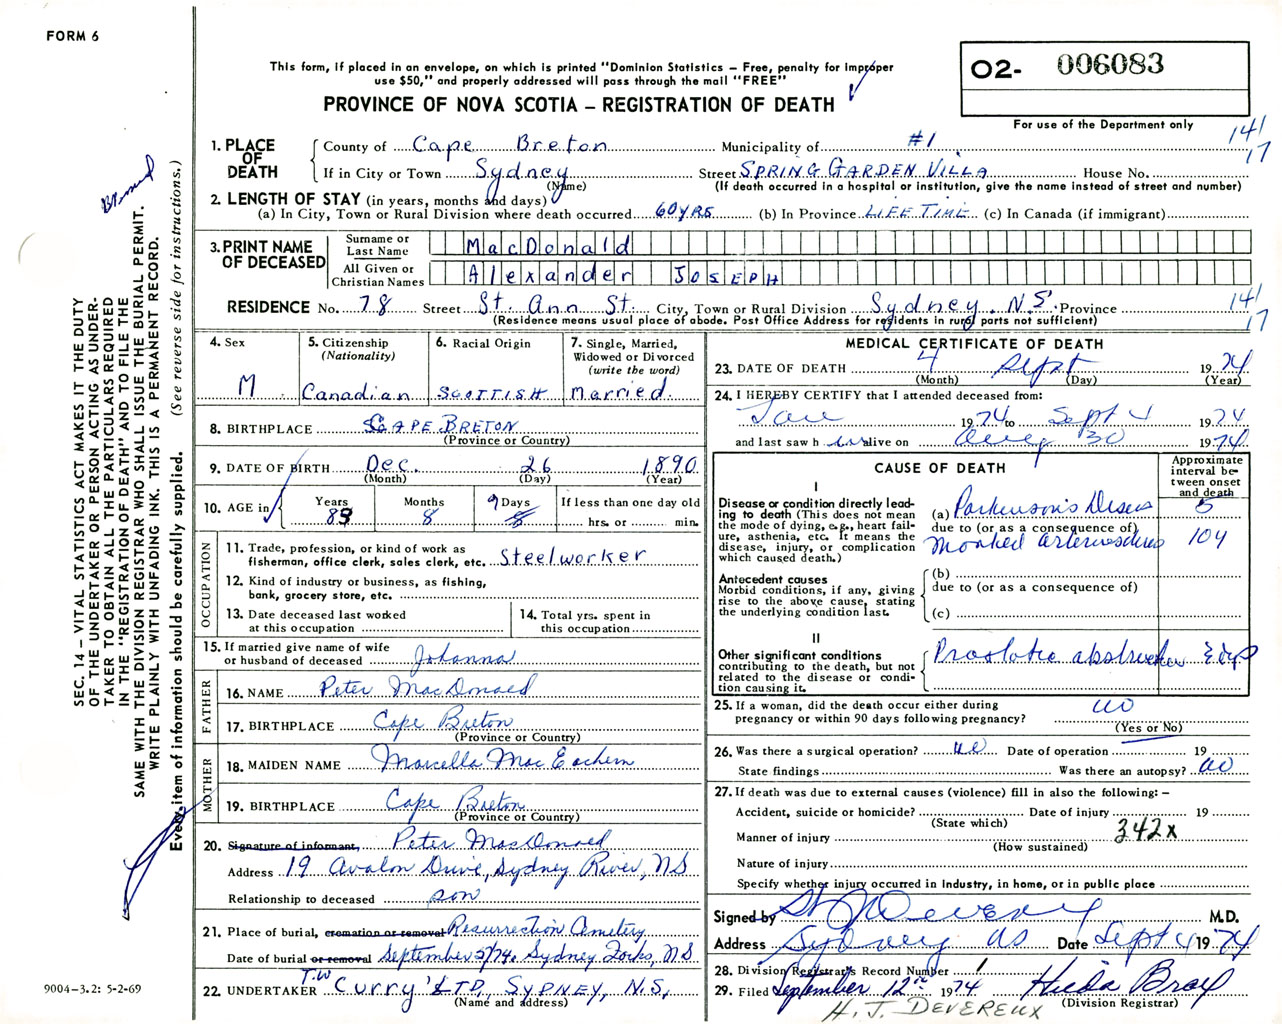 FORM 6
This form, if placed in an envelope, on which is printed "Dominion Statistics – Free, penalty for improper
use $50," and properly addressed will pass through the mail "FREE"
PROVINCE OF NOVA SCOTIA – REGISTRATION OF DEATH
O2- 006083
For use of the Department only
141
17
1. PLACE OF DEATH
County of Cape Breton Municipality of #1
If in City or Town Sydney Street SPRING GARDEN VILLA House No.
(Name) (If death occurred in a hospital or institution, give the name instead of street and number)
2. LENGTH OF STAY (in years, months and days)
(a) In City, Town or Rural Division where death occurred 60 YRS (b) In Province LIFE TIME (c) In Canada (if immigrant)
3. PRINT NAME OF DECEASED
Surname or Last Name MacDonald
All Given or Christian Names Alexander JOSEPH
RESIDENCE No. 78 Street St. Ann St. City, Town or Rural Division Sydney, N.S. Province 141
17
(Residence means usual place of abode. Post Office Address for residents in rural parts not sufficient)
4. Sex M
5. Citizenship (Nationality) Canadian
6. Racial Origin SCOTTISH
7. Single, Married, Widowed or Divorced (write the word) Married
8. BIRTHPLACE CAPE BRETON
(Province or Country)
9. DATE OF BIRTH Dec. 26 1890
(Month) (Day) (Year)
10. AGE in Years 83 Months 8 Days 9 8 If less than one day old
hrs. or min.
OCCUPATION
11. Trade, profession, or kind of work as
fisherman, office clerk, sales clerk, etc. Steelworker
12. Kind of industry or business, as fishing,
bank, grocery store, etc.
13. Date deceased last worked
at this occupation
14. Total yrs. spent in
this occupation
15. If married give name of wife
or husband of deceased Johanna
FATHER
16. NAME Peter MacDonald
17. BIRTHPLACE Cape Breton
(Province or Country)
MOTHER
18. MAIDEN NAME Marcella MacEachern
19. BIRTHPLACE Cape Breton
(Province or Country)
20. Signature of informant, Peter MacDonald
Address 19 Avalon Drive, Sydney River, NS
Relationship to deceased son
21. Place of burial, cremation or removal Resurrection Cemetery
Date of burial or removal September 5/74. Sydney Forks, NS
22. UNDERTAKER T.W Curry LTD, SYDNEY, N.S,
(Name and address)
MEDICAL CERTIFICATE OF DEATH
23. DATE OF DEATH 4 Sept 1974
(Month) (Day) (Year)
24. I HEREBY CERTIFY that I attended deceased from:
Jan 1974 to Sept 4 1974
and last saw h im alive on Aug 30 1974
CAUSE OF DEATH
Approximate interval between onset and death
I
Disease or condition directly leading
to death (This does not mean
the mode of dying, e.g., heart failure,
asthenia, etc. It means the
disease, injury, or complication
which caused death.)
(a) Parkinson's 5
due to (or as a consequence of)
Marked 10y
Antecedent causes
Morbid conditions, if any, giving
rise to the above cause, stating
the underlying condition last.
(b)
due to (or as a consequence of)
(c)
II
Other significant conditions
contributing to the death, but not
related to the disease or condition
causing it.
Prostatic
25. If a woman, did the death occur either during
pregnancy or within 90 days following pregnancy? no
(Yes or No)
26. Was there a surgical operation? no Date of operation 19
State findings Was there an autopsy? no
27. If death was due to external causes (violence) fill in also the following: –
Accident, suicide or homicide? Date of injury 19
(State which)
Manner of injury 342x
(How sustained)
Nature of injury
Specify whether injury occurred in Industry, in home, or in public place
Signed by Devereux M.D.
Address Sydney NS Date Sept 4 1974
28. Division Registrar's Record Number 1
29. Filed September 12 1974 Hilda Bray
(Division Registrar)
H. J. DEVEREUX
SEC. 14 – VITAL STATISTICS ACT MAKES IT THE DUTY
OF THE UNDERTAKER OR PERSON ACTING AS UNDERTAKER
TO OBTAIN ALL THE PARTICULARS REQUIRED
IN THE "REGISTRATION OF DEATH" AND TO FILE THE
SAME WITH THE DIVISION REGISTRAR WHO SHALL ISSUE THE BURIAL PERMIT.
WRITE PLAINLY WITH UNFADING INK. THIS IS A PERMANENT RECORD.
Every item of information should be carefully supplied. (See reverse side for instructions.)
9004-3.2: 5-2-69